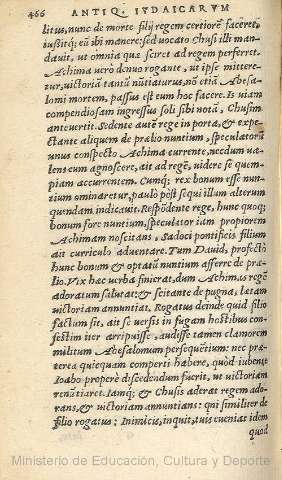 466 ANTIQ. IVDAICARVM
litus, nunc de morte filij regem certiorē facere,
iussitq; eū ibi manere: sed vocato Chusi illi man-
dauit, ut omnia quæ sciret ad regem perferret.
Achima verò denuo rogante, ut ipse mittere-
tur, victoriā tantū nūtiaturus, nō etiā Abesa-
lomi mortem, passus est eum hoc facere. Is viam
compendiosam ingressus soli sibi notā, Chusim
anteuertit. Sedente autē rege in porta, & expe-
ctante aliquem de prælio nuntium, speculatorū
unus conspecto Achima currente, necdum va-
lens eum agnoscere, ait ad regē, videre se quem-
piam accurrentem. Cumq; rex bonum esse nun-
tium ominaretur, paulò pòst sequi illum alterum
quendam indicauit. Respōdente rege, hunc quoq;
bonum fore nuntium, speculator iam propiorem
Achimam noscitans, Sadoci pontificis filium
ait curriculo aduentare. Tum Dauid, profectò
hunc bonum & optatū nuntium afferre de præ-
lio. Vix hæc verba finierat, dum Achimas regē
adoratum salutat: & scitante de pugna, lætam
victoriam annuntiat. Rogatus deinde quid filio
factum sit, ait se versis in fugam hostibus con-
festim iter arripuisse, audisse tamen clamorem
militum Abesalomum persequētium: nec præ-
terea quicquam comperti habere, quòd iubente
Ioabo properè discedendum fuerit, ut victoriam
renūtiaret. Iamq; & Chusis aderat regem ado-
rans, & victoriam annuntians: qui similiter de
filio rogatus: Inimicis, inquit, tuis eueniat idem
quod
Ministerio de Educación, Cultura y Deporte